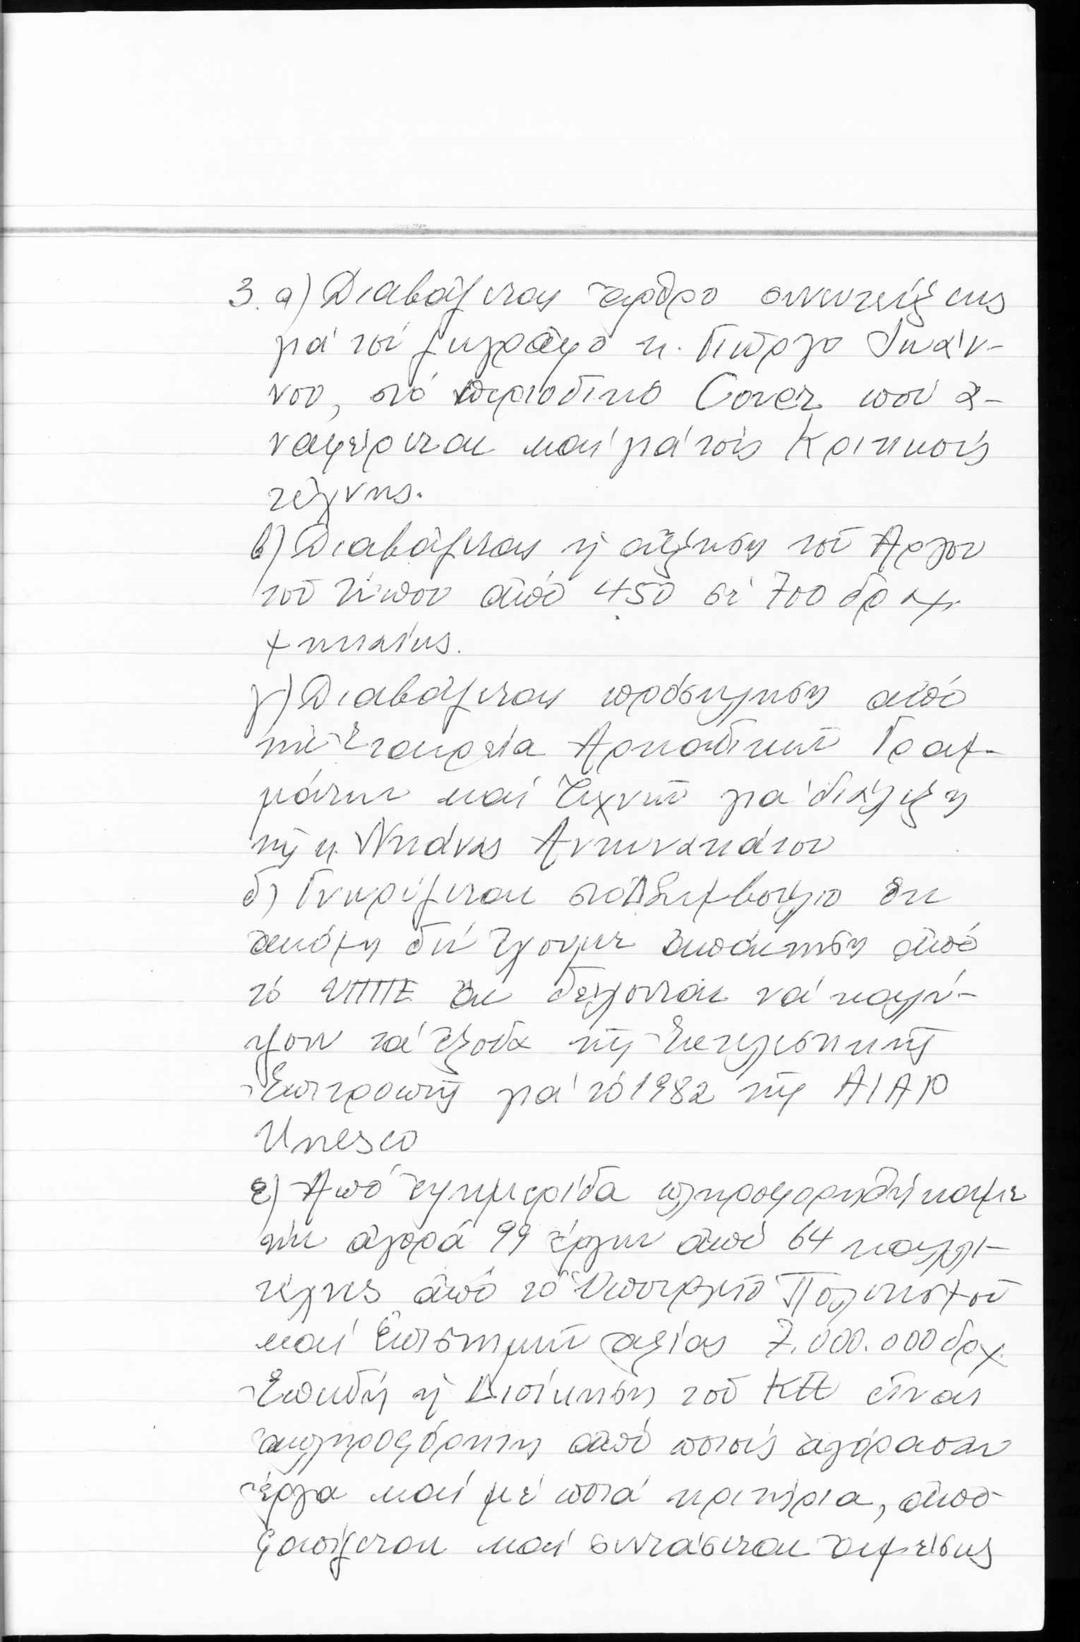 3. α) Διαβάζεται ἄρθρο συνεντεύξεως
γιά τόν ζωγράφο κ. Γιῶργο Ἰωάν-
νου, στό περιοδικό Cover πού ἀ-
ναφέρεται καί γιά τούς Κριτικούς
τέχνης.
β) Διαβάζεται ἡ αὔξηση τοῦ Ἀργου
τοῦ τύπου ἀπό 450 σέ 700 δραχ.
μηνιαίως.
γ) Διαβάζεται πρόσκληση ἀπό
τήν Ἑταιρεία Ἀρκαδικῶν Γραμ-
μάτων καί Τεχνῶν γιά διάλεξη
τῆς κ. Ντιάνας Ἀντωνακάτου
δ) Γνωρίζεται στό Δ. Συμβούλιο ὅτι
ἀκόμη δέν ἔχουμε ἀπάντηση ἀπό
τό ΥΠΠΕ ἄν δέχονται νά καλύ-
ψουν τά ἔξοδα τῆς Ἐκτελεστικῆς
Ἐπιτροπῆς γιά τό 1982 τῆς AIAP
Unesco
ε) Ἀπό ἐφημερίδα πληροφορηθήκαμε
τήν ἀγορά 99 ἔργων ἀπό 64 καλλι-
τέχνες ἀπό τό Ὑπουργεῖο Πολιτισμοῦ
καί Ἐπιστημῶν ἀξίας 7.000.000 δρχ.
Ἐπειδή ἡ Διοίκηση τοῦ ΚΕ εἶναι
ἀπληροφόρητη ἀπό ποιούς ἀγόρασαν
ἔργα καί μέ ποιά κριτήρια, ἀπο-
φασίζεται καί συντάσεται ἀμέσως